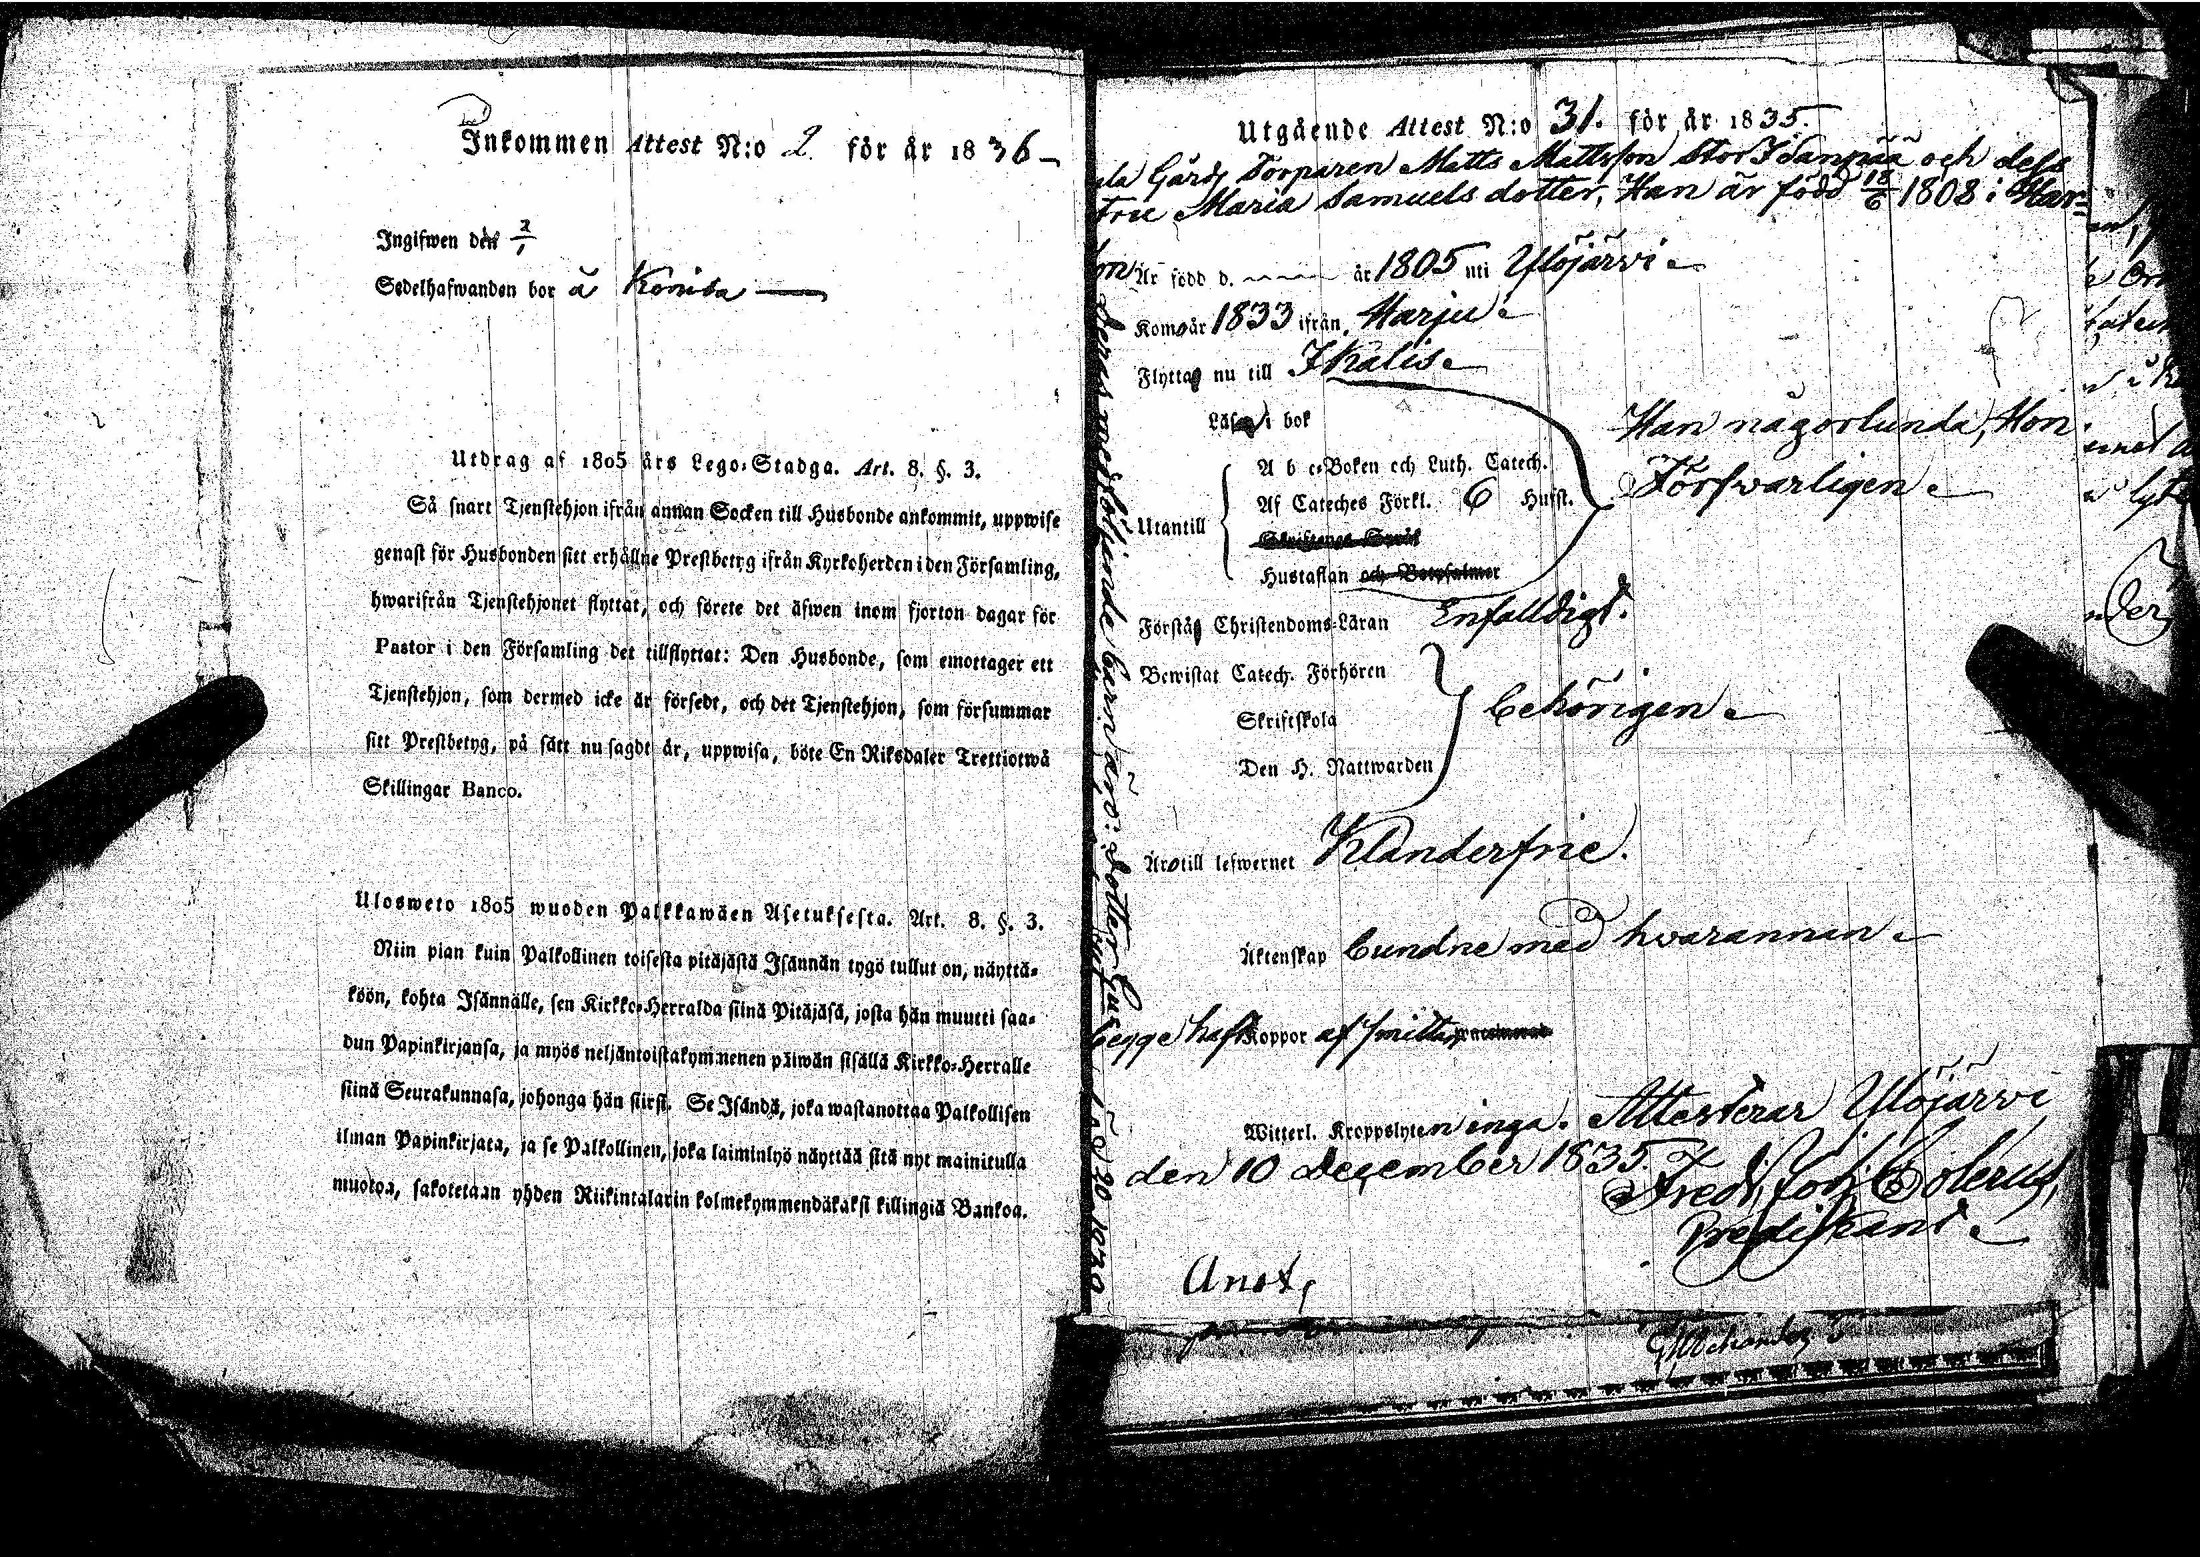 Inkommen Attest N:o 2 för år 1836
Ingifwen den 2/1
Sedelhafwanden bor å
Utdrag af 1805 års Lego-Stadga. Art. 8. §. 3.
Så snart Tjenstehjon ifrån annan Socken till Husbonde ankommit, uppwise
genast för Husbonden sitt erhållne Prestbetyg ifrån Kyrkoherden i den Församling,
hwarifrån Tjenstehjonet flyttat, och förete det äfwen inom fjorton dagar för
Pastor i den Församling det tillflyttat: Den Husbonde, som emottager ett
Tjenstehjon, som dermed icke är försedt, och det Tjenstehjon, som försummar
sitt Prestbetyg, på sätt nu sagdt är, uppwisa, böte En Riksdaler Trettiotwå
Skillingar Banco.
Ulosweto 1805 wuoden Palkkawäen Asetuksesta. Art. 8. §. 3.
Niin pian kuin Palkollinen toisesta pitäjästä Isännän tygö tullut on, näyttä-
köön, kohta Isännälle, sen Kirkko-Herralda siinä Pitäjäsä, josta hän muutti saa-
dun Papinkirjansa, ja myös neljäntoistakymmenen päiwän sisällä Kirkko-Herralle
siinä Seurakunnasa, johonga hän siirsi. Se Isändä, joka wastanottaa Palkollisen
ilman Papinkirjata, ja se Palkollinen, joka laiminlyö näyttää sitä nyt mainitulla
muotoa, sakotetaan yhden Riikintalarin kolmekymmendäkaksi killingiä Bankoa.
Utgående Attest N:o 31. för år 1835.
Gårds Torparen Matts Mattsson Stor Idanpää och dess
Maria Samuels dotter, Han är född 18/6 1808 i Har=
är född d. år 1805 uti Ylöjärvi
Komo år 1833 ifrån Harju
Flytta nu till Ikalis
Läsa i bok
A b c-Boken och Luth. Catech.
Han någorlunda, Hon
Utantill
Af Cateches Förkl. 6 Hufst.
Försvarligen
Hustaflan och Botpsalmer
Förstå Christendoms-Läran Enfalldigt.
Bewistat Catech. Förhören
Skriftskola
behörigen
Den H. Nattwarden
Äro till lefwernet Klanderfrie.
Äktenskap bundne med hvarannan
begge haft Koppor af smittan
Witterl. Kroppslyten inga. Attesterar Ylöjärvi
den 10 December 1835. Fred. Joh.
Predikant
deras medföljande barn äro: dotter